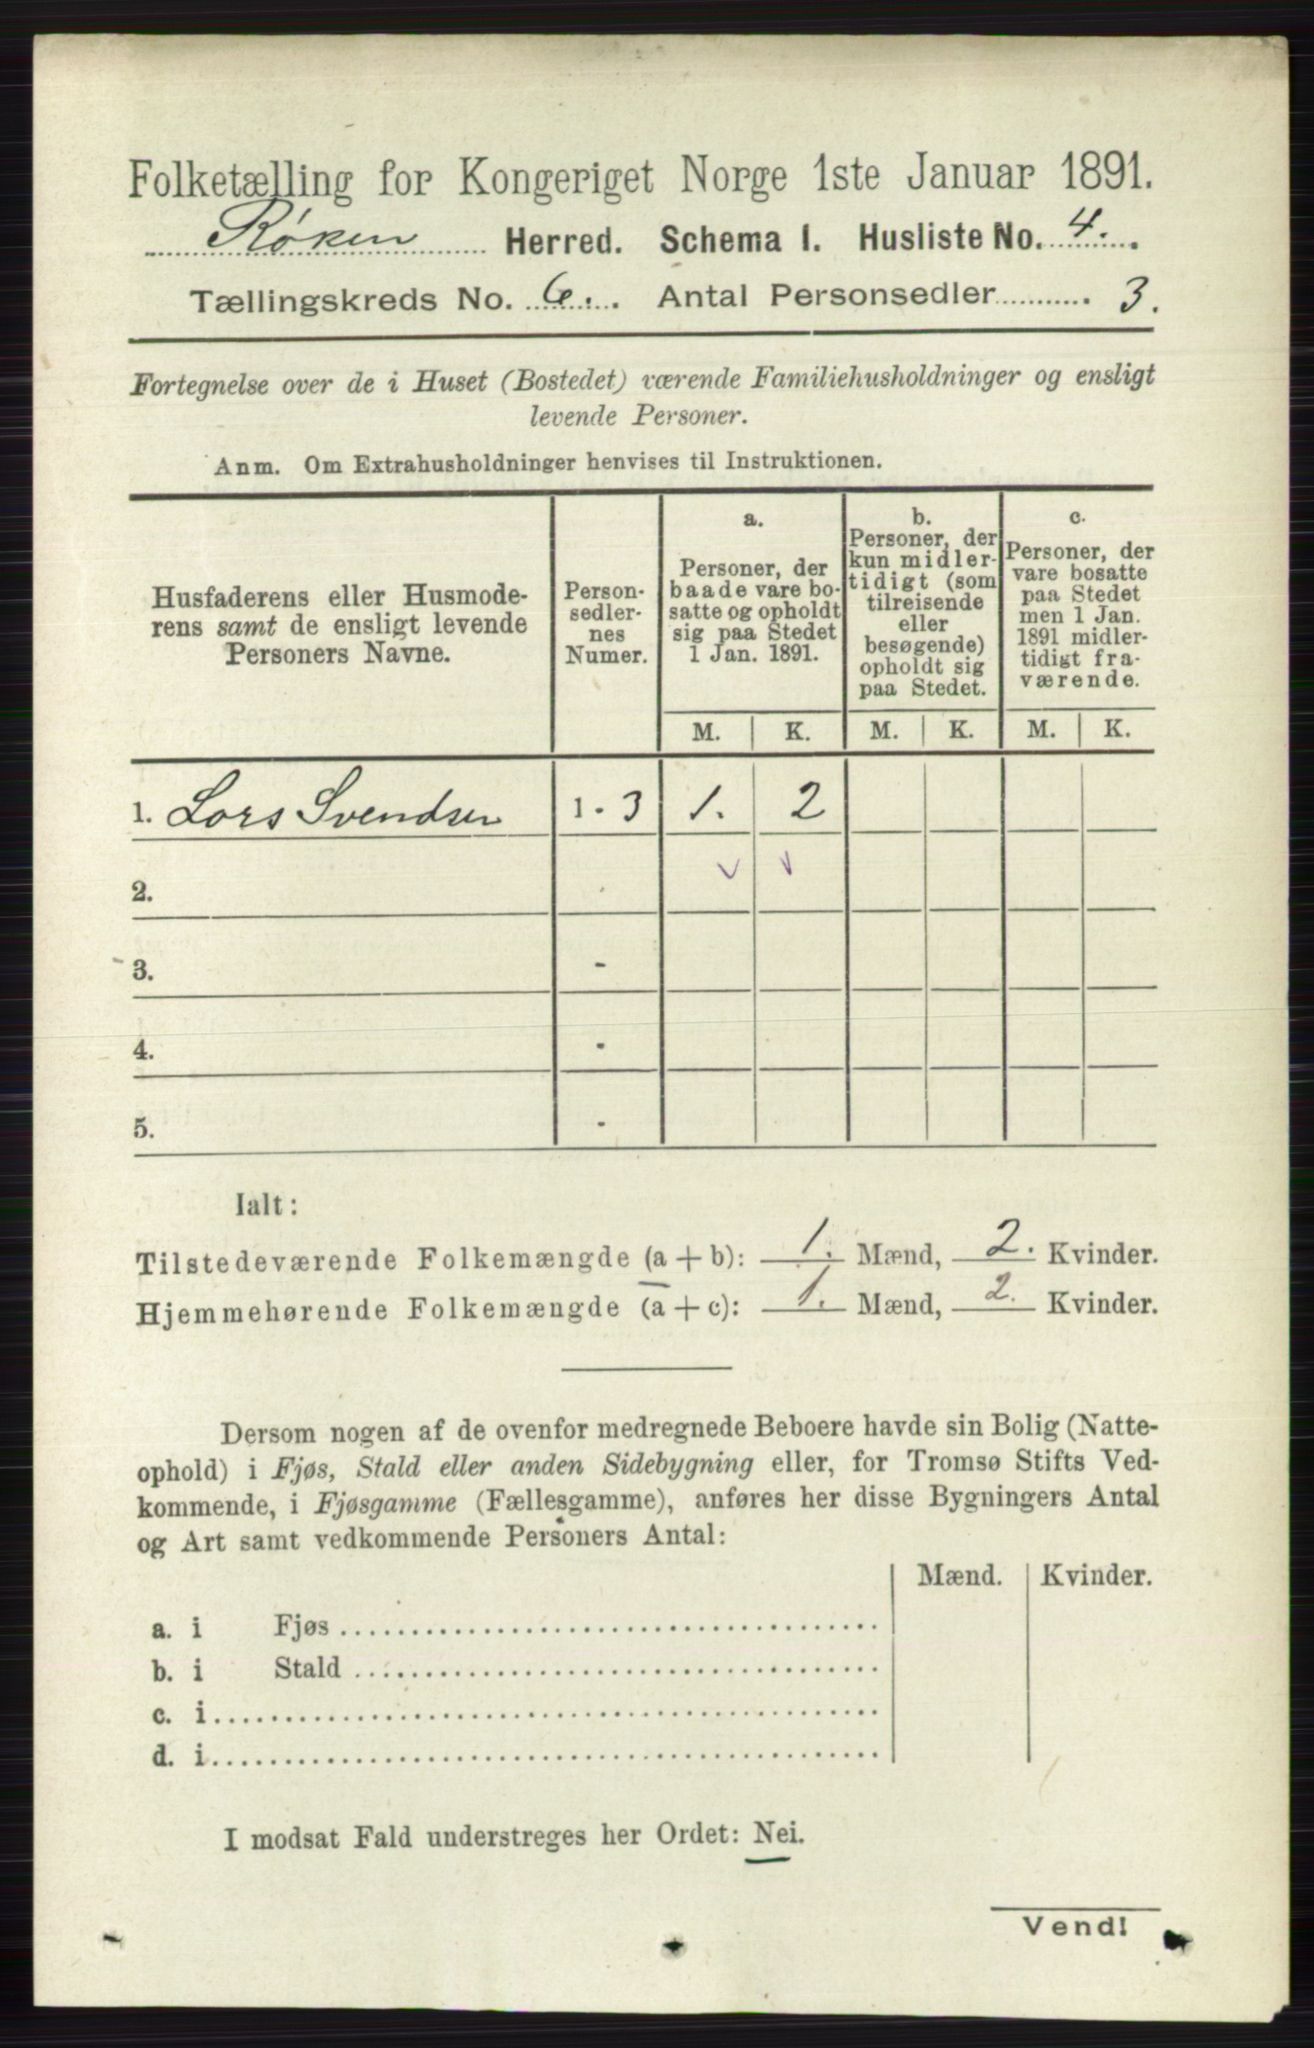 Folketælling for Kongeriget Norge 1ste Januar 1891.
Røken Herred. Schema I. Husliste No. 4.
Tællingskreds No. 6. Antal Personsedler 3.
Fortegnelse over de i Huset (Bostedet) værende Familiehusholdninger og ensligt
levende Personer.
Anm. Om Extrahusholdninger henvises til Instruktionen.
Husfaderens eller Husmode-
rens samt de ensligt levende
Personers Navne.
Person-
sedler-
nes
Numer.
a.
Personer, der
baade vare bo-
satte og opholdt
sig paa Stedet
1 Jan. 1891.
b.
Personer, der
kun midler-
tidigt (som
tilreisende
eller
besøgende)
opholdt sig
paa Stedet.
c.
Personer, der
vare bosatte
paa Stedet
men 1 Jan.
1891 midler-
tidigt fra-
værende.
M. K. M. K. M. K.
1. Lars Svendsen 1 - 3 1. 2
2.
3. -
4. -
5. -
Ialt:
Tilstedeværende Folkemængde (a + b): 1. Mænd, 2. Kvinder.
Hjemmehørende Folkemængde (a + c): 1. Mænd, 2. Kvinder.
Dersom nogen af de ovenfor medregnede Beboere havde sin Bolig (Natte-
ophold) i Fjøs, Stald eller anden Sidebygning eller, for Tromsø Stifts Ved-
kommende, i Fjøsgamme (Fællesgamme), anføres her disse Bygningers Antal
og Art samt vedkommende Personers Antal:
Mænd. Kvinder.
a. i Fjøs
b. i Stald
c. i
d. i
I modsat Fald understreges her Ordet: Nei.
Vend!